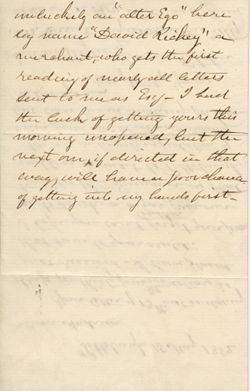 unluckily an "alter Ego" here
by name "David Richey" a
merchant, who gets the first
reading of nearly all letters
sent to me as Esq— I had
the luck of getting yours this
morning unopened, but the
next one, if directed in that
way, will have a poor chance
of getting into my hands first—